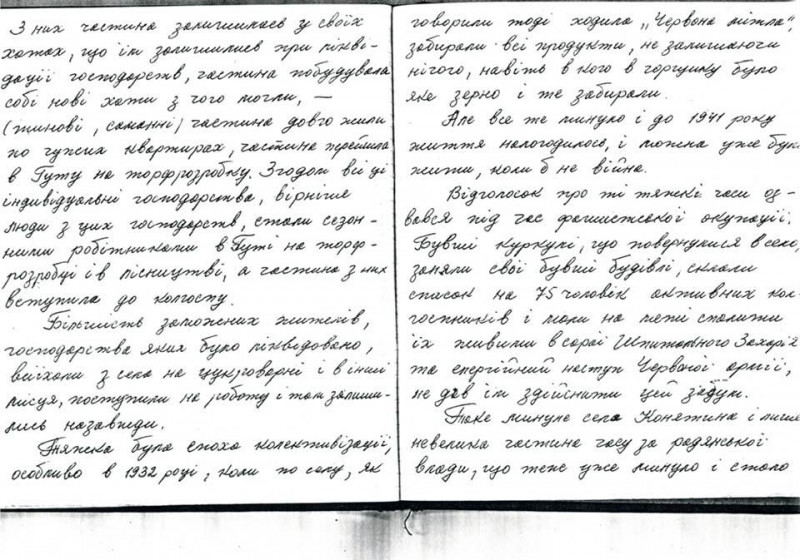 З них частина залишилась у своїх
хатах, що їм залишились при лікві-
дації господарств, частина побудувала
собі нові хати з чого могли, —
(типові, саманні) частина довго жили
по чужих квартирах, частина перейшла
в Гуту на торфрозробку. Згодом всі ці
індивідуальні господарства, вірніше
люди з цих господарств, стали сезон-
ними робітниками в Гуті на торф-
розробці і в лісництві, а частина з них
вступила до колгоспу.
Більшість заможних жителів,
господарства яких було ліквідовано,
виїхали з села на цукроварні і в інші
місця, поступили на роботу і там залиши-
лись назавжди.
Тяжка була епоха колективізації,
особливо в 1932 році, коли по селу, як
говорили тоді ходила „Червона мітла",
забирали всі продукти, не залишаючи
нічого, навіть в кого в горщику було
яке зерно і те забирали.
Але все же минуло і до 1941 року
життя налогодилось, і можна уже було
жити, коли б не війна.
Відголосок про ті тяжкі часи оз-
вався під час фашистської окупації.
Бувші куркулі, що повернулися в село,
заняли свої бувші будівлі, склали
список на 75 чоловік активних кол-
госпників і мали на меті спалити
їх живими в сараї Шпитального Захарія
та енергійний наступ Червоної армії,
не дав їм здійснити цей задум.
Таке минуле села Конятина і лише
невелика частина часу за радянської
влади, що теж уже минуло і стало